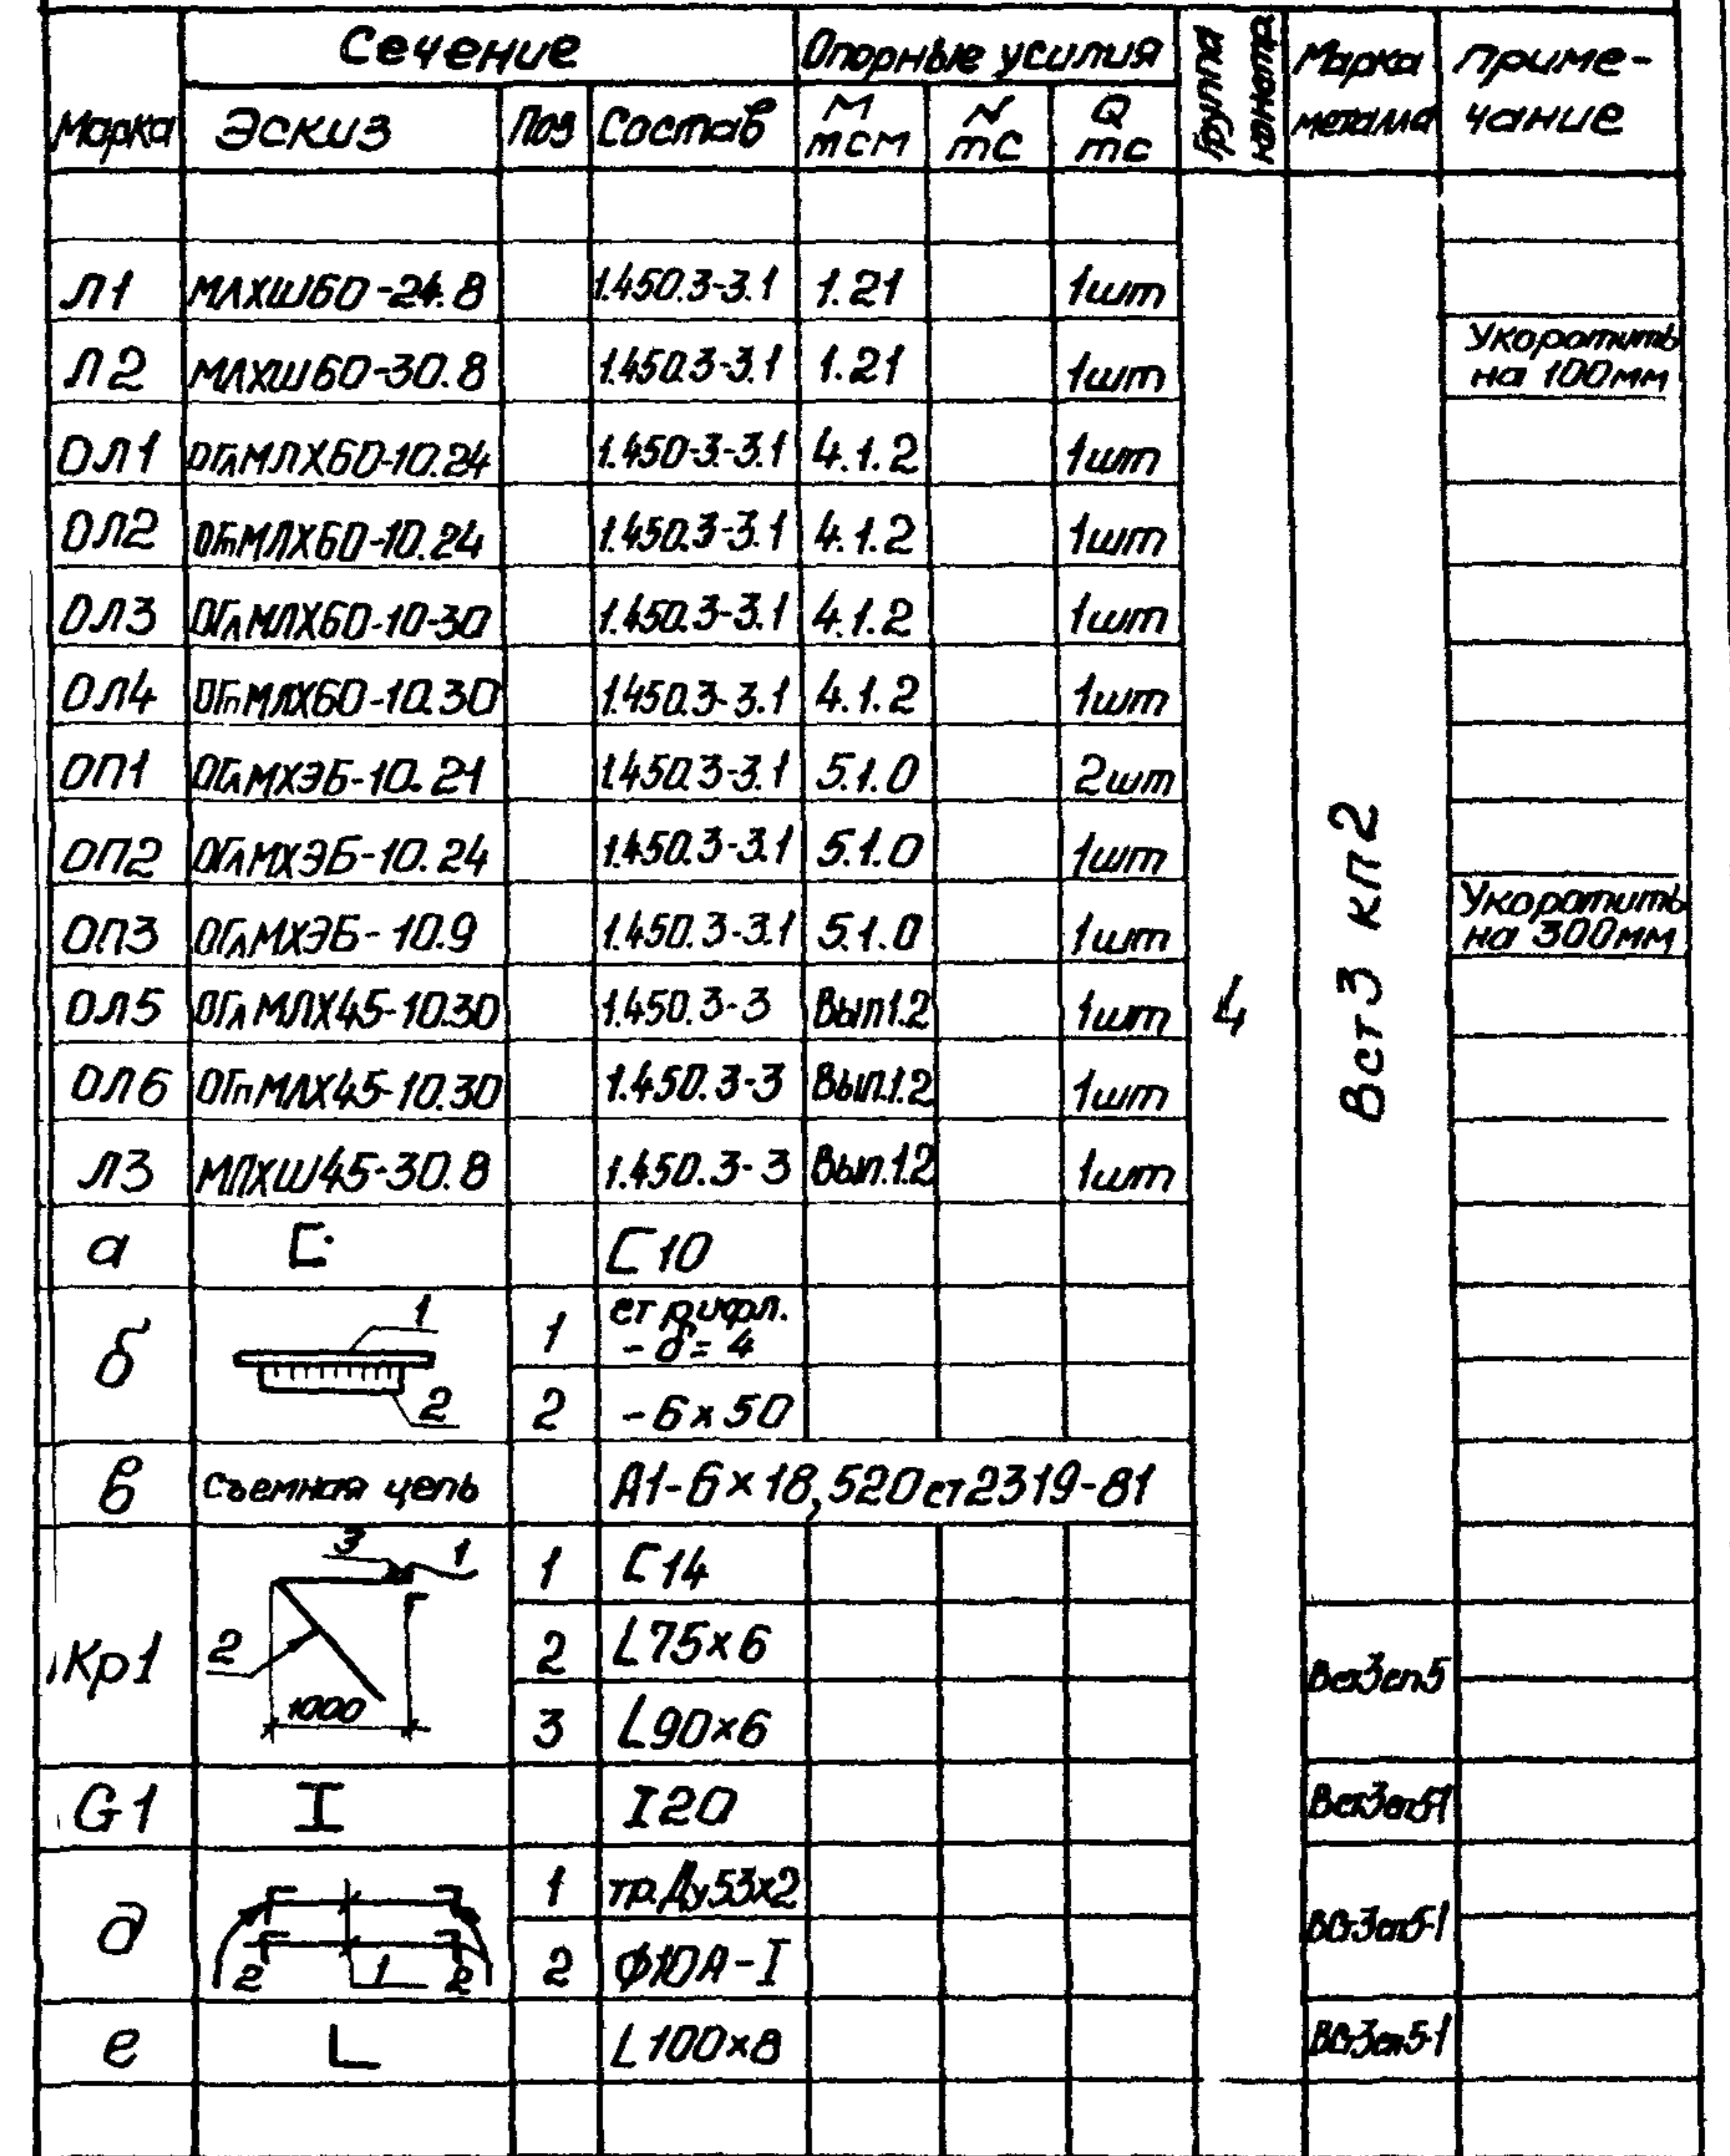 Сечение Опорные усилия Группа констр. Марка металла Приме-
чание
Марка Эскиз Поз Состав М тсм N тс Q тс
Л1 МЛХШ60-24.8 1.450.3-3.1 1.21 1шт
Л2 МЛХШ60-30.8 1.450.3-3.1 1.21 1шт Укоротить
на 100мм
ОЛ1 ОГлМЛХ60-10.24 1.450-3.-3.1 4.1.2 1шт
ОЛ2 ОГпМЛХ60-10.24 1.450.3-3.1 4.1.2 1шт
ОЛ3 ОГлМЛХ60-10-30 1.450.3-3.1 4.1.2 1шт
ОЛ4 ОГпМЛХ60-10.30 1.450.3-3.1 4.1.2 1шт
ОП1 ОГлМХЭБ-10.21 1.450.3-3.1 5.1.0 2шт
ОП2 ОГлМХЭБ-10.24 1.450.3-3.1 5.1.0 1шт
ОП3 ОГлМХЭБ-10.9 1.450.3-3.1 5.1.0 1шт Укоротить
на 300мм
ОЛ5 ОГлМЛХ45-10.30 1.450.3-3 Вып1.2 1шт 4 Вст3 кп2
ОЛ6 ОГпМЛХ45-10.30 1.450.3-3 Вып.1.2 1шт
Л3 МЛХШ45-30.8 1.450.3-3 Вып.1.2 1шт
а [ [10
б 1 1 ст рифл.
- δ= 4
2 2 -6×50
в Съемная цепь А1-6×18,5 20ст2319-81
Кр1 3 1 1 [14
2 2 L75×6 Вст3сп5
1000 3 L90×6
G1 I I20 Вст3сп5-1
д 1 тр.Ду53х2 ВСт3сп5-1
2 1 2 2 ф10А-I
е L L100×8 ВСт3сп5-1